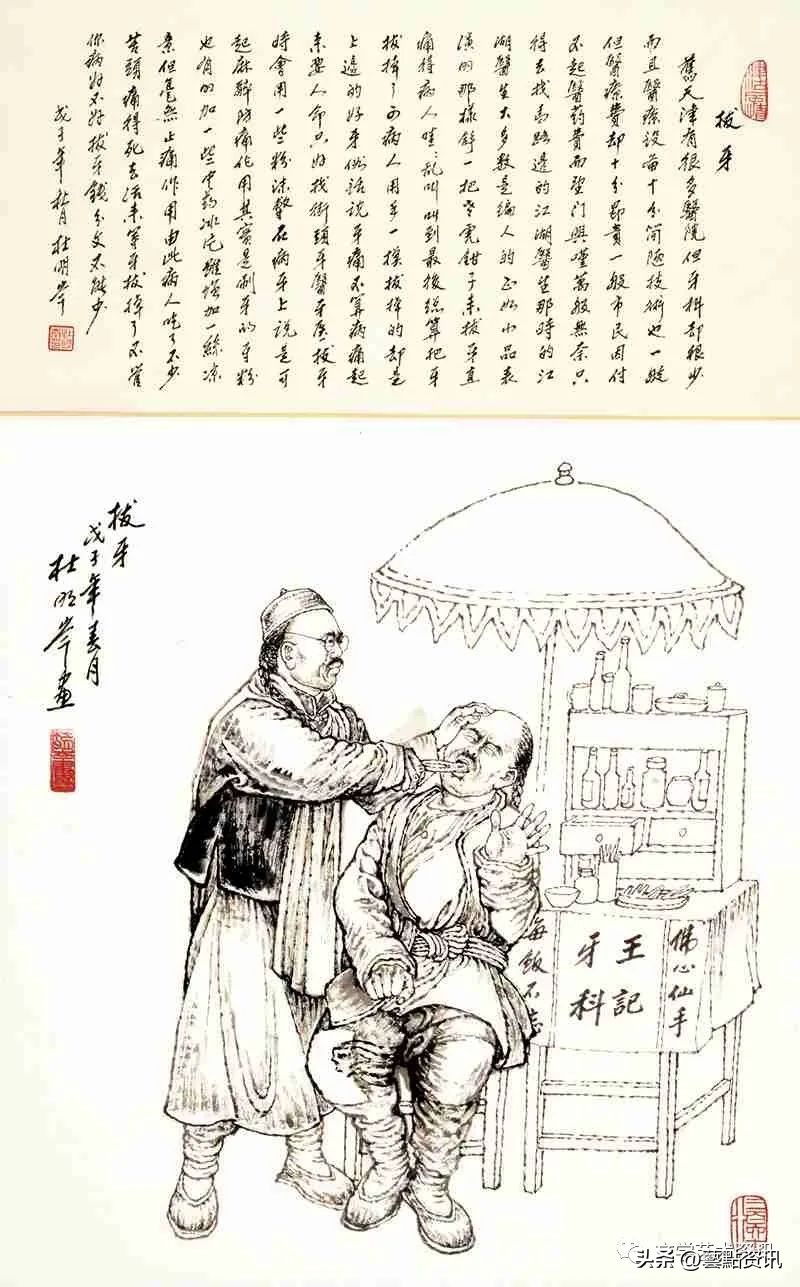 拔牙
舊天津有很多醫院但牙科却很少
而且醫療设备十分简陋技術也一般
但醫療費却十分昂貴一般市民因付
不起醫药費而望门興嘆萬般無奈只
得去找馬路邊的江湖醫生那時的江
湖醫生大多數是騙人的正如小品表
演的那樣 一把老虎鉗子来拔牙直
痛得病人哇〻乱叫叫到最後總算把牙
拔掉了可病人用手一摸拔掉的却是
上邊的好牙俗話说牙痛不算病痛起
来要人命只好找街頭牙醫牙医拔牙
時會用一些粉沫墊在病牙上说是可
起麻醉防痛作用其實是刷牙的牙粉
也有的加一些中药冰片雖增加一絲凉
意但毫無止痛作用由此病人吃了不少
苦頭痛得死去活来等牙拔掉了不管
你病好不好拔牙錢分文不能少
戊子年秋月杜明岑
拔牙
戊子年春月
杜明岑畫
佛心仙手
王記
牙科
每飯不忘
头条@藝點资讯